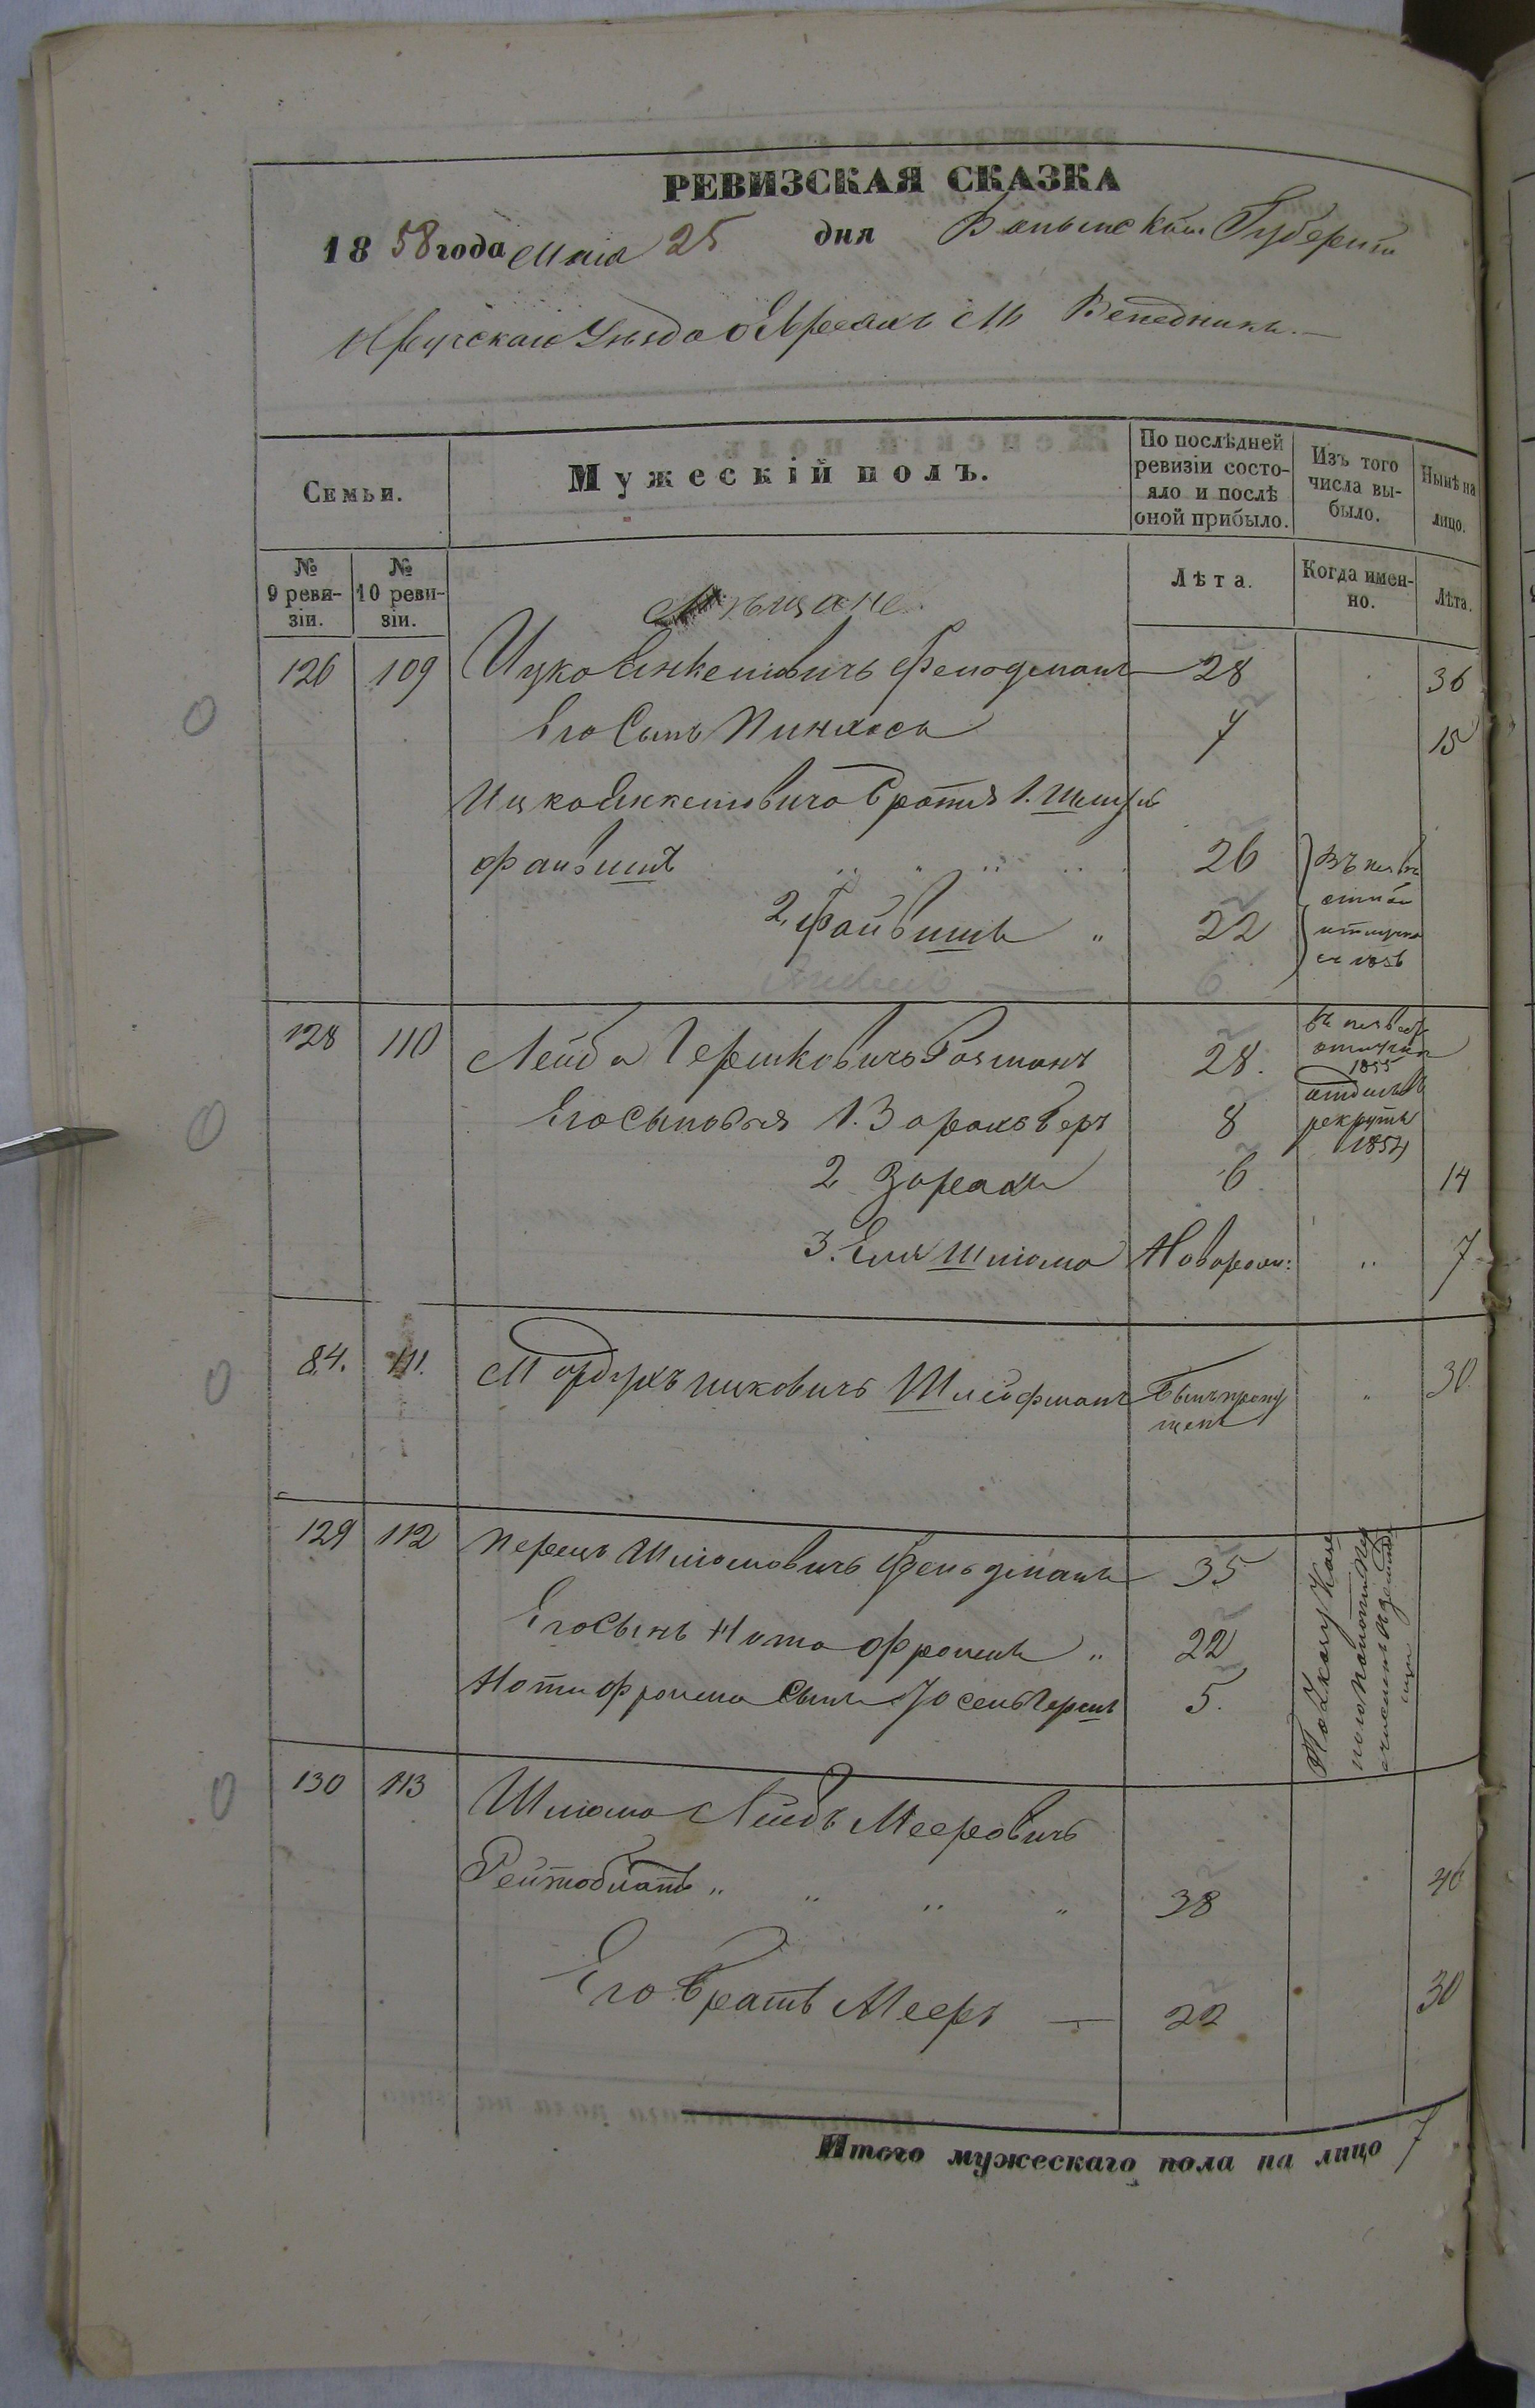 РЕВИЗСКАЯ СКАЗКА
18 58 года Мая 25 дня Волынской Губернии
Уѣзда о Евреяхъ М. Веледникъ.—
Семьи.
Мужескій полъ.
По послѣдней ревизіи состо-
яло и послѣ
оной прибыло.
Изъ того
числа вы-
было.
Нынѣ на
лицо.
№
9 реви-
зіи.
№
10 реви-
зіи.
Лѣта.
Когда имен-
но.
Лѣта.
Мѣщане
126 109 Ицко Янкелевичъ Фельдманъ 28 36
Его Сынъ Пинхасъ 7 15
Ицка Янкелевича братья 1.
Файвишъ 26
2. Файвишъ " 22
128 110 Лейба Гершковичъ 28.
1855
Его Сыновья 1. Беръ 8
рекруты
1854
2 Зорахъ 6 14
3. Еля Шлиома Новорож: " 7
84. 111. Мордухъ Ицковичъ Шлейфманъ Былъ пропу
щенъ " 30
129 112 Перецъ Шлиомовичъ Фельдманъ 35
Его Сынъ Нота Фроимъ " 22
Ноты Фроима Сынъ Іосель Гершъ 5.
По Указу
130 113 Шлиома Лейбъ Мееровичъ
Рейтоблатъ " " " " 38 46
Его Братъ Мееръ — 22 30
Итого мужескаго пола на лицо 7